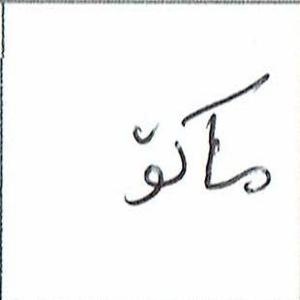 ماکۆ